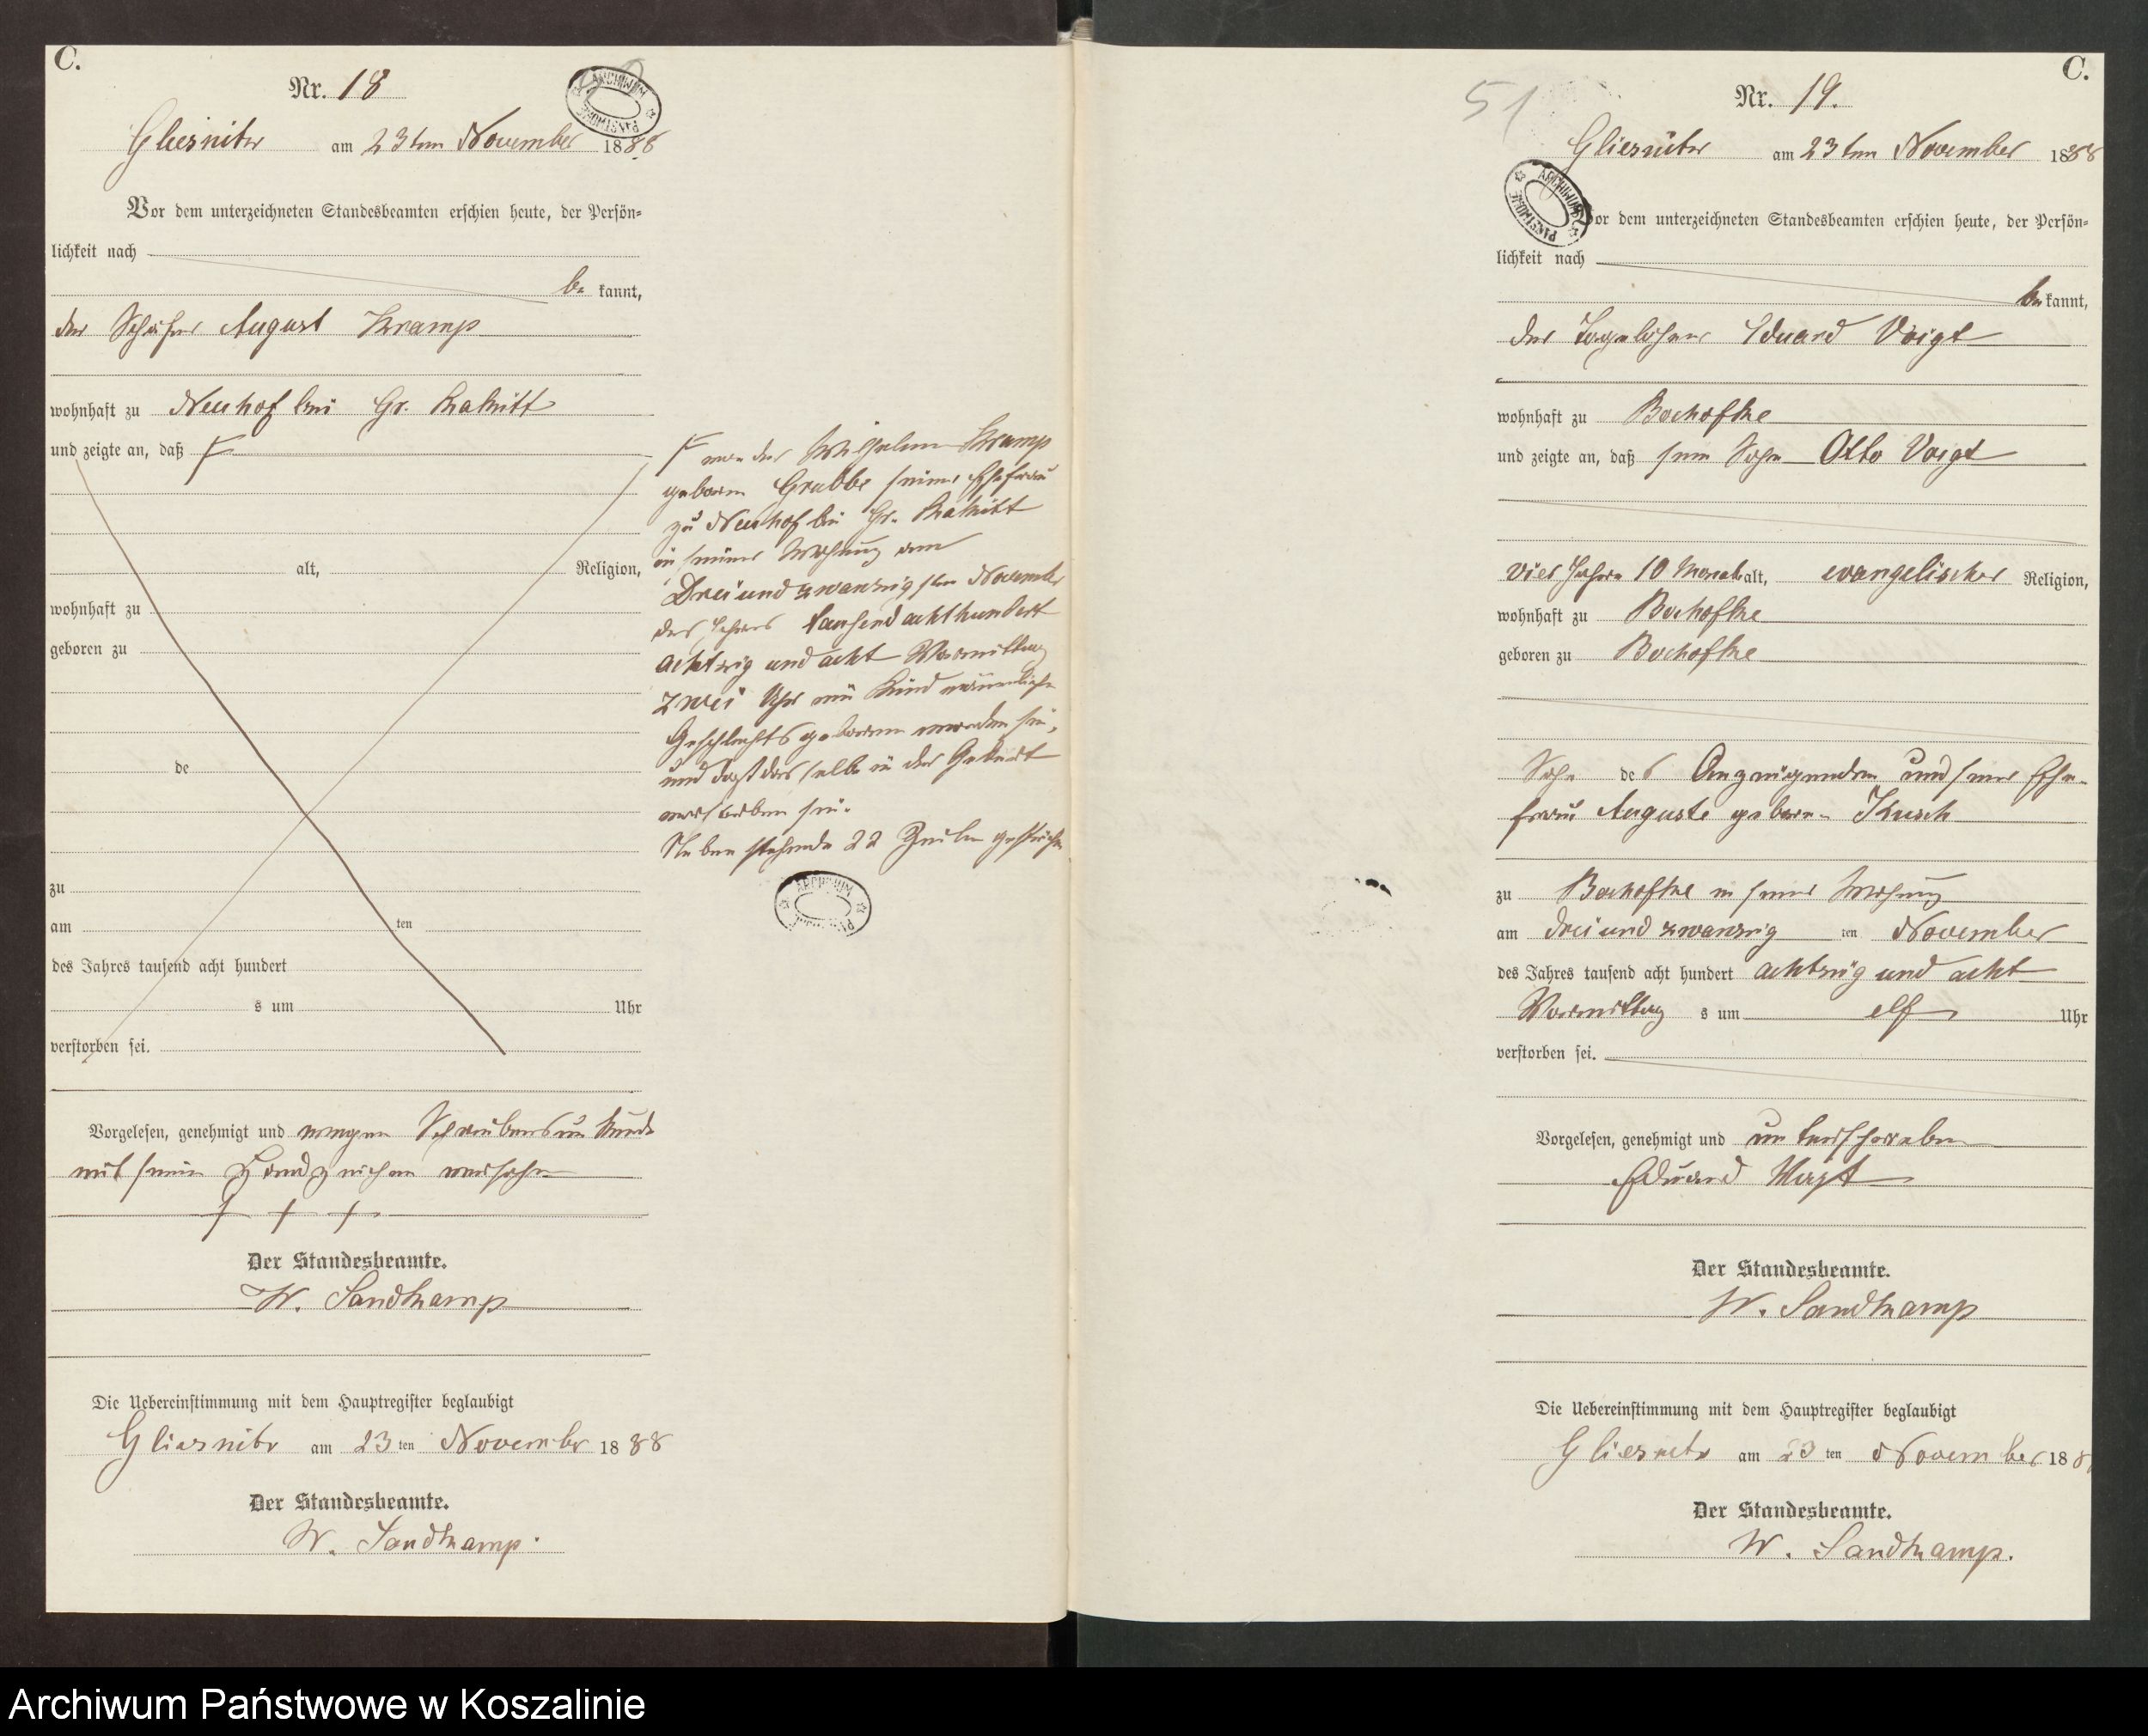 C.
Nr. 18
Gliesnitz am 23ten November 1888
Vor dem unterzeichneten Standesbeamten erschien heute, der Persön=
lichkeit nach
be kannt,
der Schäfer August Kramp
wohnhaft zu Neuhof bei Gr. Rakitt
und zeigte an, daß
alt, Religion,
wohnhaft zu
geboren zu
de
zu
am ten
des Jahres tausend acht hundert
s um Uhr
verstorben sei.
Vorgelesen, genehmigt und wegen Schreibensunkunde
mit seinem Handzeichen versehen
+ + +
Der Standesbeamte.
W. Sandkamp
Die Uebereinstimmung mit dem Hauptregister beglaubigt
Gliesnitz am 23ten November 1888
Der Standesbeamte.
W. Sandkamp.
von der Kramp
geboren Grabbe seiner Ehefrau
zu Neuhof bei Gr. Rakitt
in seiner Wohnung am
Dreiundzwanzigsten November
des Jahres tausend achthundert
achtzig und acht Vormittag
zwei Uhr ein Kind männlichen
Geschlechts geboren worden sei,
und daß dasselbe in der Geburt
verstorben sei.
Nebenstehende 22 Zeilen gestrichen
ARCHIWUM PAŃSTWOWE
51
C.
Nr. 19.
Gliesnitz am 23ten November 1888
Vor dem unterzeichneten Standesbeamten erschien heute, der Persön=
lichkeit nach
be kannt,
der Tagelöhner Eduard Voigt
wohnhaft zu Bochofke
und zeigte an, daß sein Sohn Otto Voigt
vier Jahre 10 Monate alt, evangelischer Religion,
wohnhaft zu Bochofke
geboren zu Bochofke
Sohn des Anzeigenden und seiner Ehe-
frau Auguste geboren Kusch
zu Bochofke in seiner Wohnung
am dreiundzwanzig ten November
des Jahres tausend acht hundert achtzig und acht
Vormittag s um elf Uhr
verstorben sei.
Vorgelesen, genehmigt und unterschrieben
Eduard
Der Standesbeamte.
W. Sandkamp
Die Uebereinstimmung mit dem Hauptregister beglaubigt
Gliesnitz am 23 ten November 188
Der Standesbeamte.
W. Sandkamp.
Archiwum Państwowe w Koszalinie